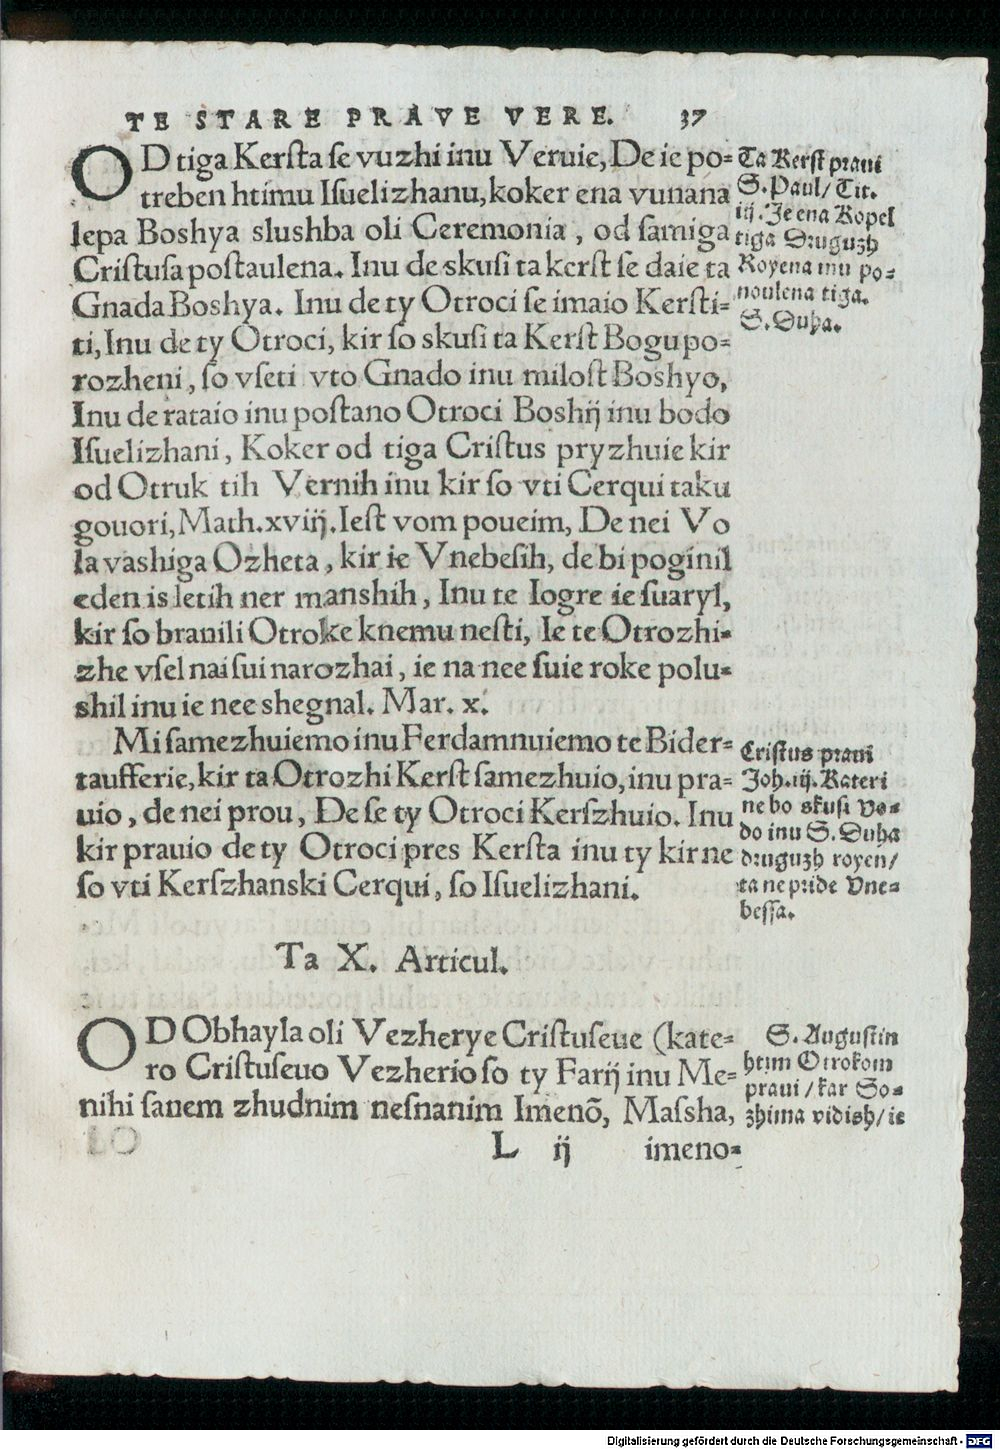 TE STARE PRAVE VERE. 37
OD tiga Kerſta ſe vuzhi inu Veruie, De ie po=
treben htimu Iſuelizhanu, koker ena vunana
lepa Boshya slushba oli Ceremonia, od ſamiga
Criſtuſa poſtaulena. Inu de skuſi ta kerſt ſe daie ta
Gnada Boshya. Inu de ty Otroci ſe imaio Kerſti=
ti, Inu de ty Otroci, kir ſo skuſi ta Kerſt Bogu po=
rozheni, ſo vſeti vto Gnado inu miloſt Boshyo,
Inu de rataio inu poſtano Otroci Boshij inu bodo
Iſuelizhani, Koker od tiga Criſtus pryzhuie kir
od Otruk tih Vernih inu kir ſo vti Cerqui taku
gouori, Math. xviij. Ieſt vom poueim, De nei Vo
la vashiga Ozheta, kir ie Vnebeſih, de bi poginil
eden is letih ner manshih, Inu te Iogre ie ſuaryl,
kir ſo branili Otroke knemu neſti, Ie te Otrozhi=
zhe vſel nai ſui narozhai, ie na nee ſuie roke polu=
shil inu ie nee shegnal. Mar. x.
Ta Kerſt praui
S. Paul/ Tit.
iij. Je ena Kopel
tiga Druguzh
Royena inu po=
noulena tiga.
S. Duha.
Mi ſamezhuiemo inu Ferdamnuiemo te Bider=
taufferie, kir ta Otrozhi Kerſt ſamezhuio, inu pra=
uio, de nei prou, De ſe ty Otroci Kerſzhuio. Inu
kir prauio de ty Otroci pres Kerſta inu ty kir ne
ſo vti Kerſzhanski Cerqui, ſo Iſuelizhani.
Criſtus praui
Joh. iij. Kateri
ne bo skuſi Vo=
do inu S. Duha
druguzh royen/
ta ne pride Vne=
beſſa.
Ta X. Articul.
OD Obhayla oli Vezherye Criſtuſeue (kate=
ro Criſtuſeuo Vezherio ſo ty Farij inu Me=
nihi ſanem zhudnim neſnanim Imenõ, Maſsha,
S. Auguſtin
htim Otrokom
praui/ kar So=
zhima vidish/ ie
L ij imeno=
Digitalisierung gefördert durch die Deutsche Forschungsgemeinschaft - DFG